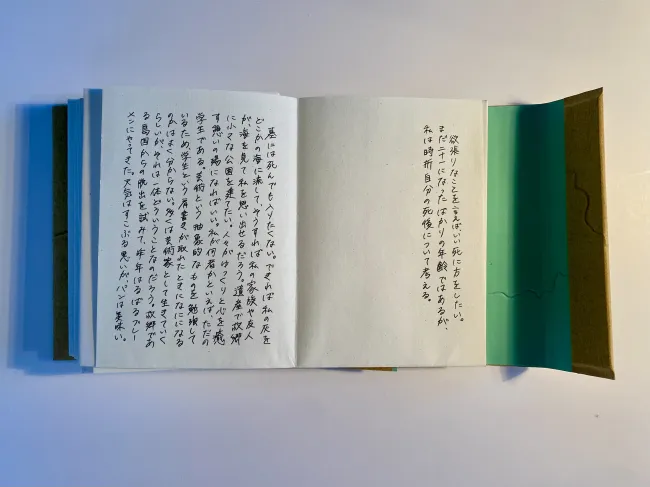 欲張りなことを言えばいい死に方をしたい。
まだ二十一になったばかりの年齢ではあるが、
私は時折自分の死後について考える。
墓には死んでも入りたくない。できれば私の灰を
どこかの海に流して、そうすれば私の家族や友人
が、海を見て私を思い出せるだろう。遺産で故郷
に小さな公園を建てたい。人々がゆっくりと心を癒
す憩いの場になればいい。私が何者かといえば、ただの
学生である。芸術という抽象的なものを勉強して
いるため、学生という肩書きが取れたときになにになる
のかはよく分からない。多くは芸術家として生きていく
らしいが、それは一体どういうことなのだろう。故郷であ
る島国からの脱出を試みて、昨年はるばるブレー
メンにやってきた。天気はすこぶる悪いが、パンは美味い。